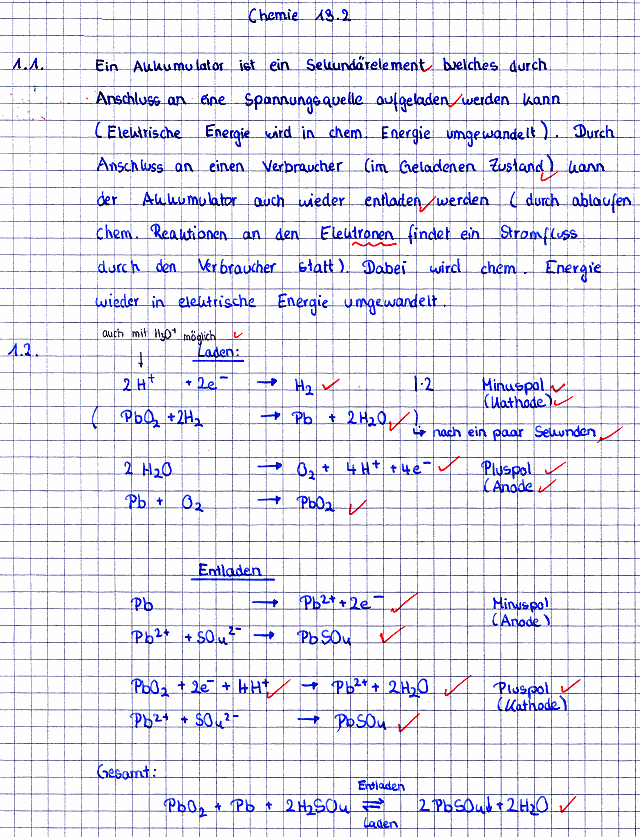 Chemie 13.2
1.1. Ein Akkumulator ist ein Sekundärelement welches durch
Anschluss an eine Spannungsquelle aufgeladen werden kann
(Elektrische Energie wird in chem. Energie umgewandelt). Durch
Anschluss an einen Verbraucher (im Geladenen Zustand) kann
der Akkumulator auch wieder entladen werden (durch ablaufen
chem. Reaktionen an den Elektronen findet ein Stromfluss
durch den Verbraucher statt). Dabei wird chem. Energie
wieder in elektrische Energie umgewandelt.
auch mit H₃O⁺ möglich
1.2. Laden:
↓
2 H⁺ + 2e⁻ → H₂ |·2 Minuspol
(Kathode)
(PbO₂ + 2H₂ → Pb + 2H₂O)
↳ nach ein paar Sekunden
2 H₂O → O₂ + 4H⁺ + 4e⁻ Pluspol
(Anode
Pb + O₂ → PbO₂
Entladen
Pb → Pb²⁺ + 2e⁻ Minuspol
(Anode)
Pb²⁺ + SO₄²⁻ → PbSO₄
PbO₂ + 2e⁻ + 4H⁺ → Pb²⁺ + 2H₂O Pluspol
(Kathode)
Pb²⁺ + SO₄²⁻ → PbSO₄
Gesamt:
Entladen
PbO₂ + Pb + 2H₂SO₄ ⇌ 2 PbSO₄↓ + 2H₂O
Laden